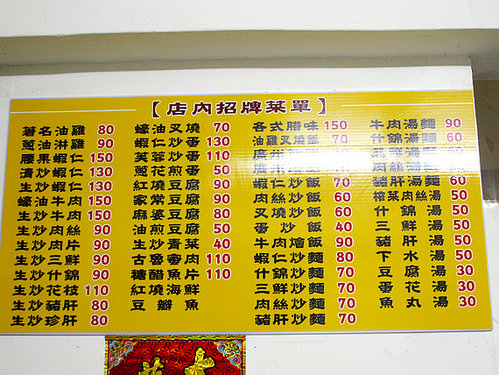 【店內招牌菜單】
著名油雞 80
蔥油淋雞 90
腰果蝦仁 150
清炒蝦仁 130
生炒蝦仁 130
蠔油牛肉 150
生炒牛肉 150
生炒肉絲 90
生炒肉片 90
生炒三鮮 90
生炒什錦 90
生炒花枝 110
生炒豬肝 80
生炒珍肝 80
蠔油叉燒 70
蝦仁炒蛋 130
芙蓉炒蛋 110
蔥花煎蛋 50
紅燒豆腐 90
家常豆腐 90
麻婆豆腐 80
油煎豆腐 50
生炒青菜 40
古魯蜜肉 110
糖醋魚片 110
紅燒海鮮
豆瓣魚
各式腊味 150
油雞叉燒飯 70
廣州
蝦仁炒飯 70
肉絲炒飯 60
叉燒炒飯 60
蛋炒飯 40
牛肉燴飯 90
蝦仁炒麵 80
什錦炒麵 70
三鮮炒麵 70
肉絲炒麵 70
豬肝炒麵 70
牛肉湯麵 90
什錦湯麵 60
肉絲湯麵
豬肝湯麵 60
榨菜肉絲湯 50
什錦湯 50
三鮮湯 50
豬肝湯 50
下水湯 50
豆腐湯 30
蛋花湯 30
魚丸湯 30